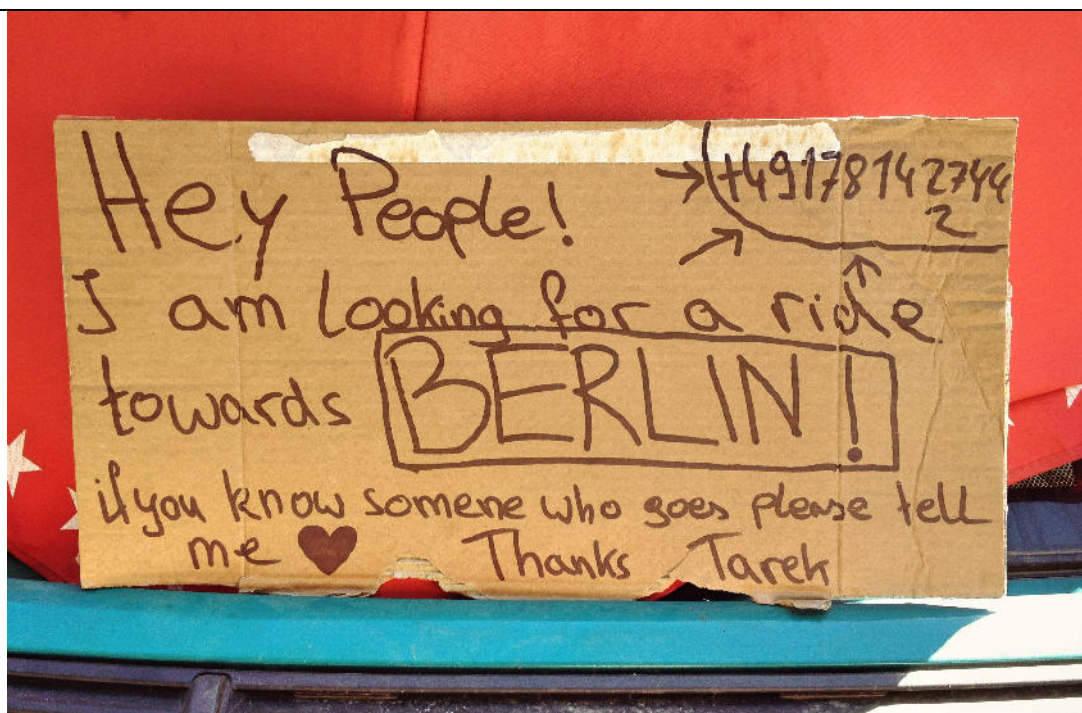 Hey People!
+49178142744
2
I am looking for a ride
towards BERLIN!
if you know somene who goes please tell
me ♥ Thanks Tarek